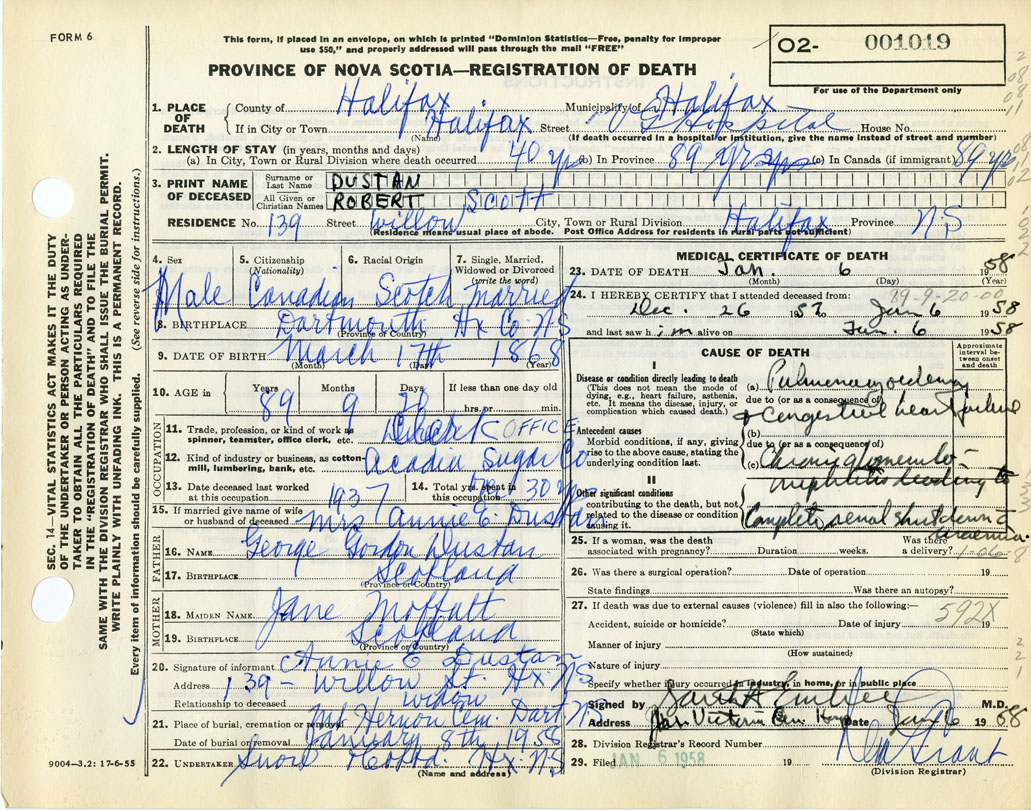 FORM 6
This form, if placed in an envelope, on which is printed "Dominion Statistics—Free, penalty for improper
use $50," and properly addressed will pass through the mail "FREE"
PROVINCE OF NOVA SCOTIA—REGISTRATION OF DEATH
02- 001019
For use of the Department only
SEC. 14—VITAL STATISTICS ACT MAKES IT THE DUTY
OF THE UNDERTAKER OR PERSON ACTING AS UNDER-
TAKER TO OBTAIN ALL THE PARTICULARS REQUIRED
IN THE "REGISTRATION OF DEATH" AND TO FILE THE
SAME WITH THE DIVISION REGISTRAR WHO SHALL ISSUE THE BURIAL PERMIT.
WRITE PLAINLY WITH UNFADING INK. THIS IS A PERMANENT RECORD.
Every item of information should be carefully supplied. (See reverse side for instructions.)
1. PLACE OF DEATH
County of Halifax Municipality of Halifax
If in City or Town Halifax Street V G Hospital House No.
(Name) (If death occurred in a hospital or institution, give the name instead of street and number)
2. LENGTH OF STAY (in years, months and days)
(a) In City, Town or Rural Division where death occurred 40 yrs (b) In Province 89 yrs (c) In Canada (if immigrant) 89 yrs
3. PRINT NAME OF DECEASED
Surname or Last Name DUSTAN
All Given or Christian Names ROBERT SCOTT
RESIDENCE No. 139 Street Willow City, Town or Rural Division Halifax Province N.S
(Residence means usual place of abode. Post Office Address for residents in rural parts not sufficient)
4. Sex 5. Citizenship (Nationality) 6. Racial Origin 7. Single, Married, Widowed or Divorced (write the word)
Male Canadian Scotch Married
8. BIRTHPLACE Dartmouth Hx Co. N.S
(Province or Country)
9. DATE OF BIRTH March 17th 1868
(Month) (Day) (Year)
10. AGE in Years Months Days If less than one day old
89 9 20 hrs. or min.
OCCUPATION
11. Trade, profession, or kind of work as spinner, teamster, office clerk, etc. Clerk OFFICE
12. Kind of industry or business, as cotton-mill, lumbering, bank, etc. Acadia Sugar Co
13. Date deceased last worked at this occupation 1937 14. Total yrs. spent in this occupation 30 yrs
15. If married give name of wife or husband of deceased Mrs Annie E. Dustan
FATHER
16. NAME George Gordon Dustan
17. BIRTHPLACE Scotland
(Province or Country)
MOTHER
18. MAIDEN NAME Jane Moffatt
19. BIRTHPLACE Scotland
(Province or Country)
20. Signature of informant Annie E Dustan
Address 139 - Willow St. Hx. N.S
Relationship to deceased widow
21. Place of burial, cremation or removal Mt Hermon Cem. Dart. N.S
Date of burial or removal January 8th 1958
22. UNDERTAKER Snow Hx. N.S
(Name and address)
9004—3.2: 17-6-55
MEDICAL CERTIFICATE OF DEATH
23. DATE OF DEATH Jan. 6 1958
(Month) (Day) (Year)
89-9-20-00
24. I HEREBY CERTIFY that I attended deceased from:
Dec. 26 1957 Jan 6 1958
and last saw him alive on Jan. 6 1958
CAUSE OF DEATH
Approximate interval between onset and death
I
Disease or condition directly leading to death
(This does not mean the mode of dying, e.g., heart failure, asthenia, etc. It means the disease, injury, or complication which caused death.)
(a) Pulmonary oedema
due to (or as a consequence of)
+ Congestive heart failure
Antecedent causes
Morbid conditions, if any, giving rise to the above cause, stating the underlying condition last.
(b)
due to (or as a consequence of)
(c) Chronic glomerulo-
nephritis leading to
II
Other significant conditions
contributing to the death, but not related to the disease or condition causing it.
Complete renal shutdown &
uraemia.
25. If a woman, was the death associated with pregnancy? Duration weeks. Was there a delivery?
26. Was there a surgical operation? Date of operation 19
State findings Was there an autopsy?
27. If death was due to external causes (violence) fill in also the following:—
592X
Accident, suicide or homicide? Date of injury 19
(State which)
Manner of injury
(How sustained)
Nature of injury
Specify whether injury occurred in industry, in home, or in public place
Signed by M.D.
Address Date Jan 6 1958
28. Division Registrar's Record Number
29. Filed JAN 6 1958 19
(Division Registrar)